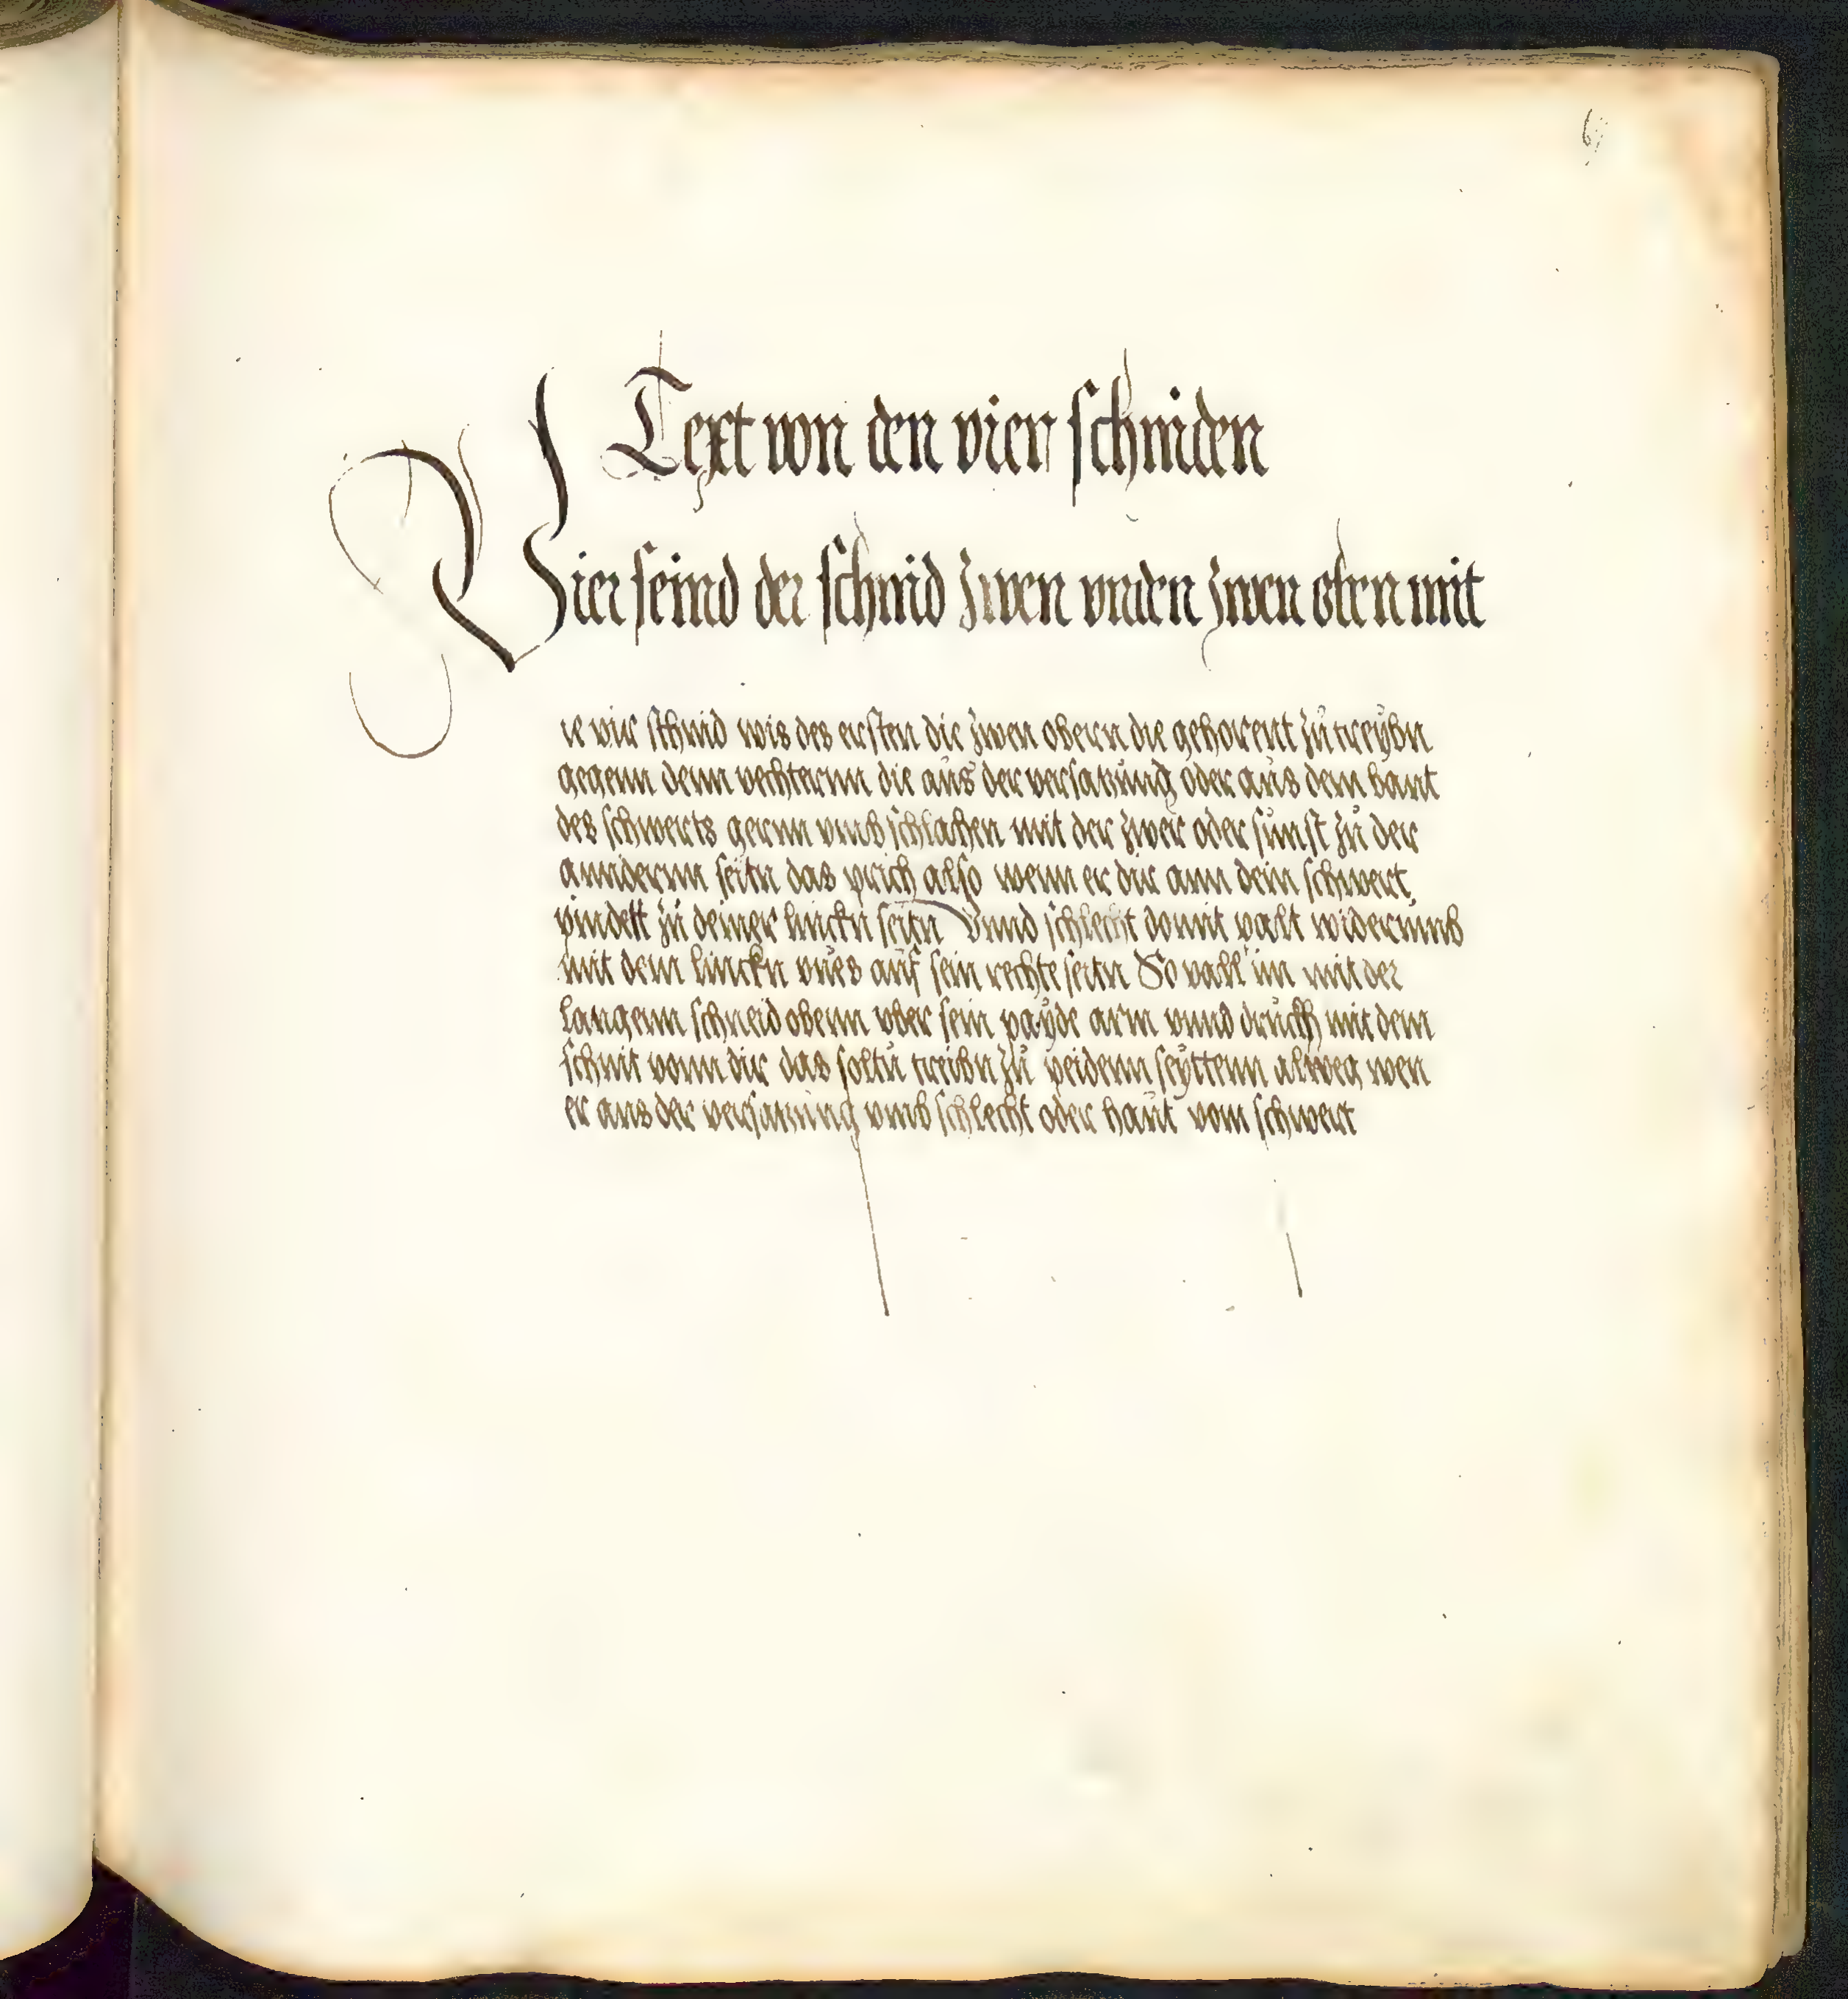 6
Text von den vier schniden
Vier seind der schnid zwen vnden zwen oben mit
ie vir schnid wis des ersten die zwen obern die gehorent zů treybn
gegenn denn vechternn die aůs der versatzůng oder aůs dem bant
des schwerts gernn vmb schlachen mit der zwer oder sůnst zů der
anndernn seitn das prich also wenn er dir ann dein schwert
pindett zů deiner linckn seitn Vnnd schlecht domit valt widerůmb
mit dem linckn vůes aůf sein rechte seitn So vall im mit der
langenn schneid obenn vber sein payde arm vnnd drůckh mit dem
schnit vonn dir das soltů treibn zů peidenn seyttenn alweg wen
er aus der versatzůng vmb schlecht oder haůt vom schwert